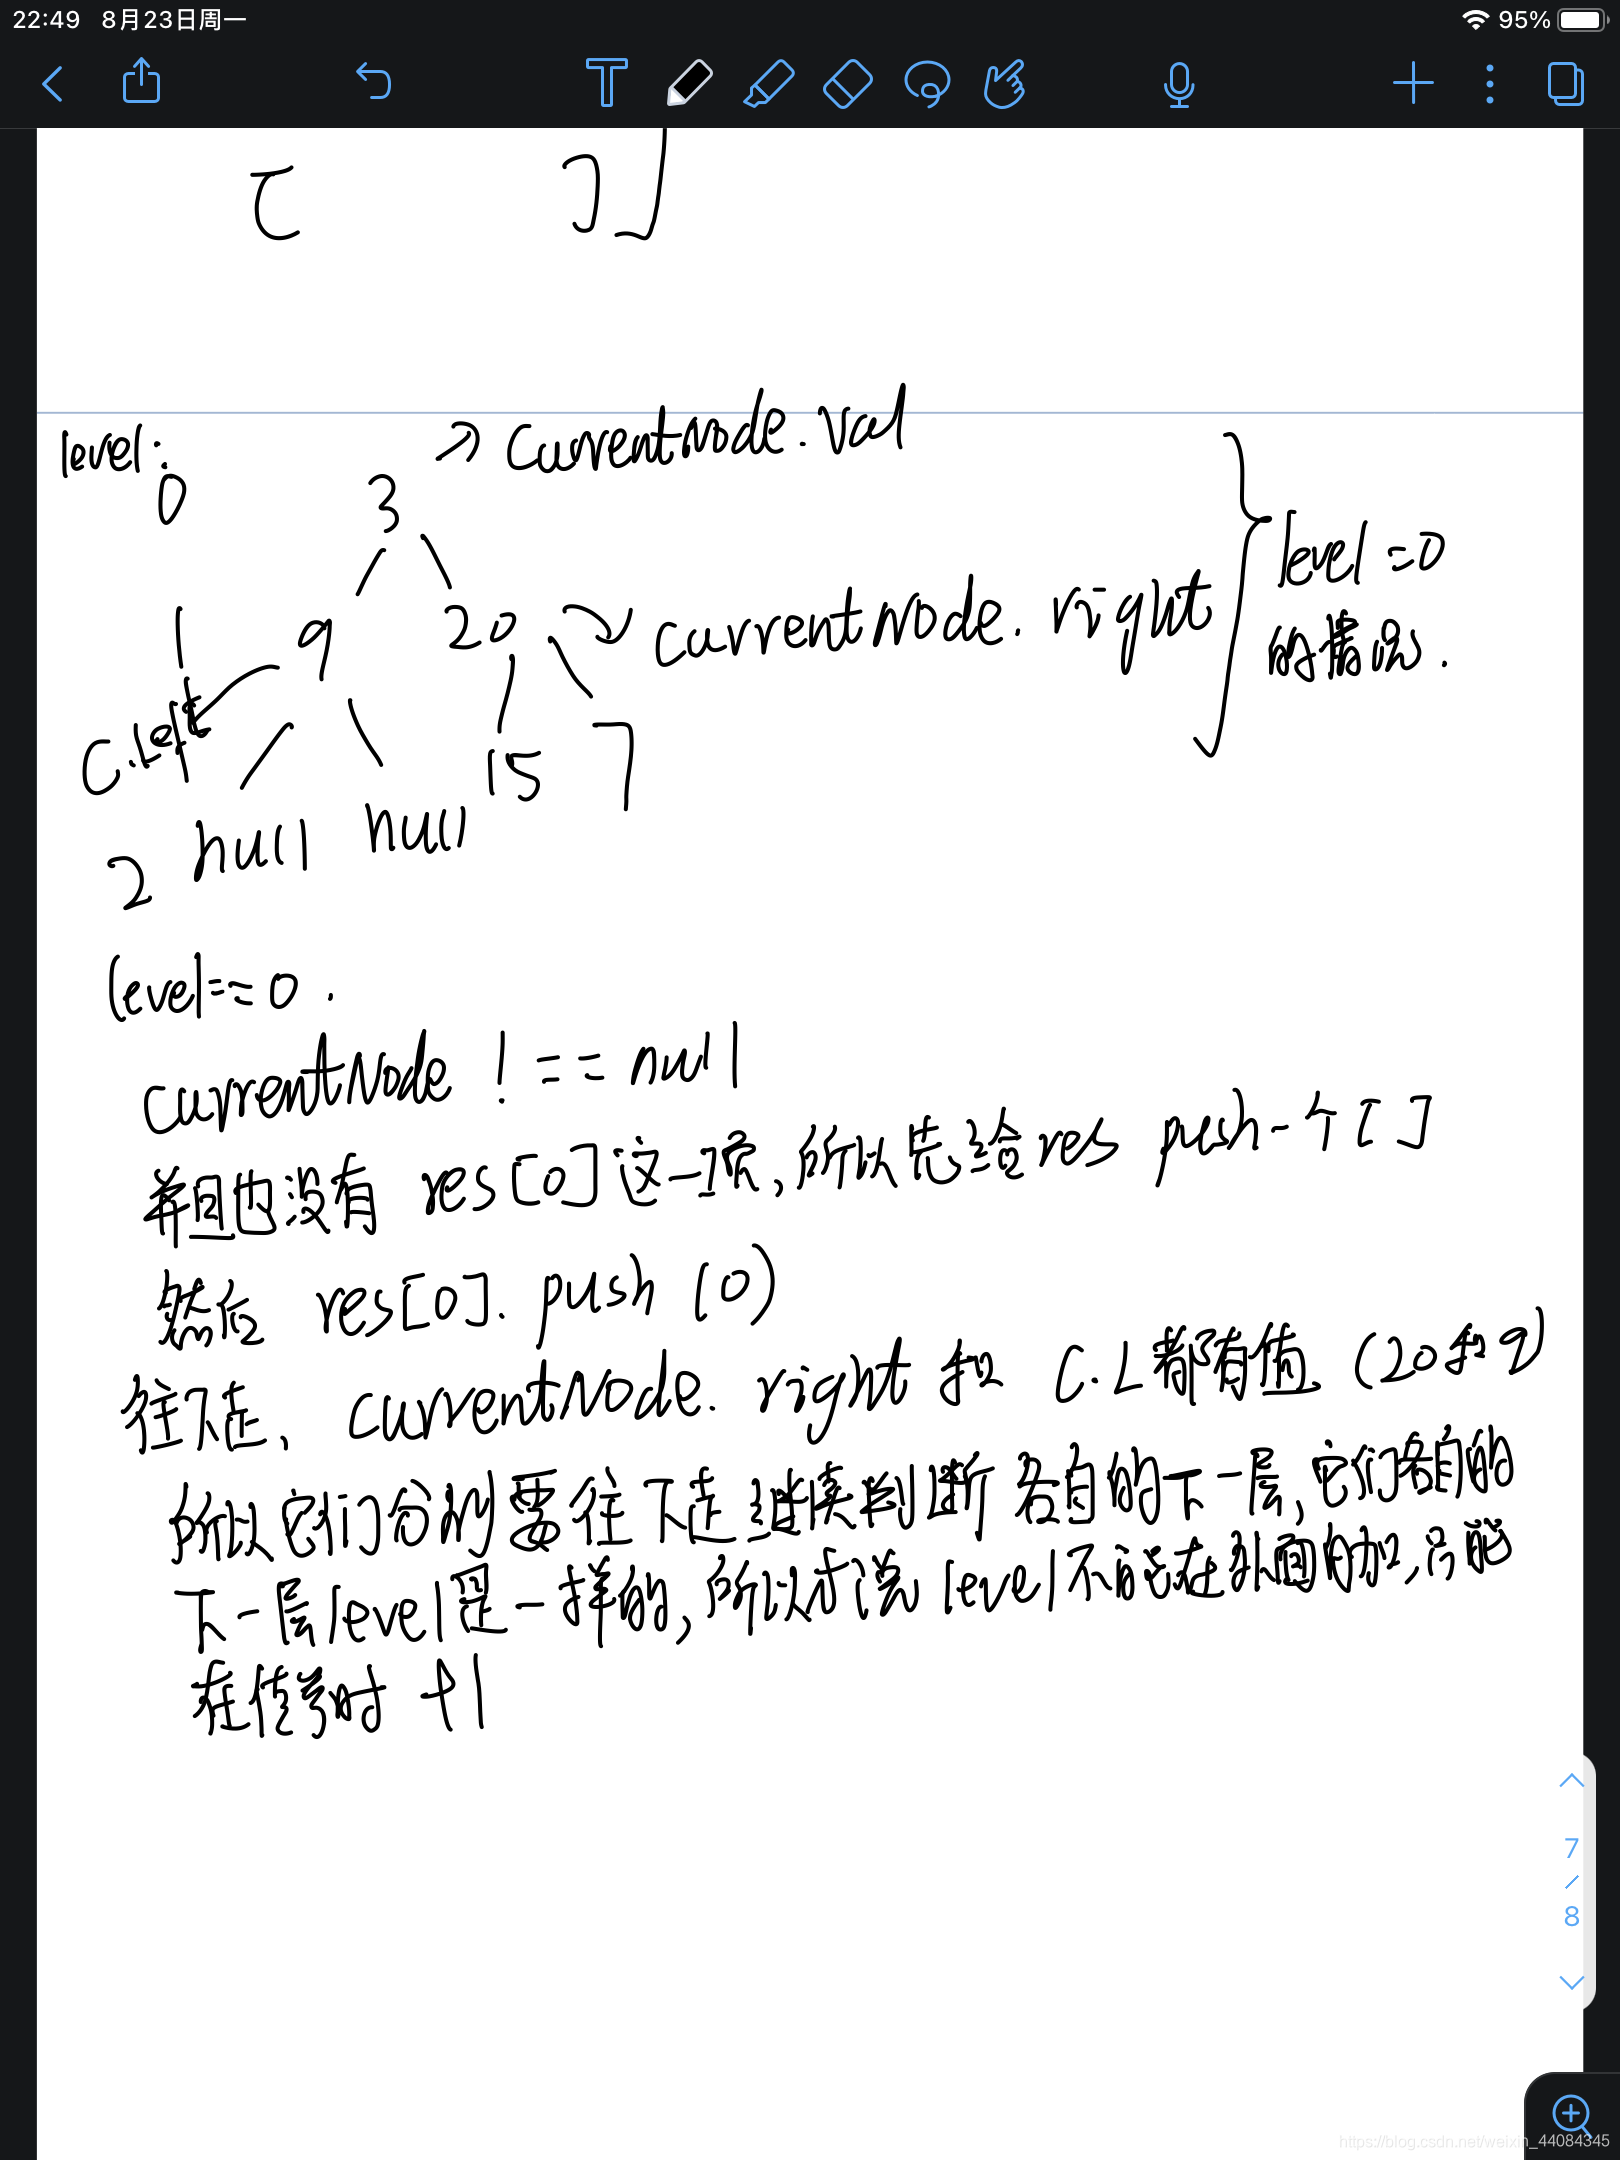 22:49 8月23日周一 95%
[ ]]
level:
0 3 → currentNode.val
level=0
的情况.
1 9 20 → currentNode.right
C.left
15 7
2 null null
level==0.
currentNode !== null
并且也没有 res[0]这一项,所以先给res push一个[]
然后 res[0].push(0)
往下走、currentNode.right 和 C.L都有值.(20和9)
所以它们分别需往下走继续判断各自的下一层,它们各自的
下一层level是一样的,所以才说level不能在外面加,只能
在传参时 +1
7
/
8
https://blog.csdn.net/weixin_44084345